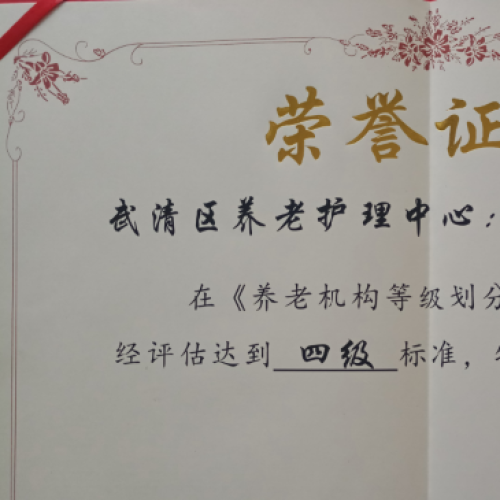 荣誉证
武清区养老护理中心：
在《养老机构等级划分
经评估达到 四级 标准，